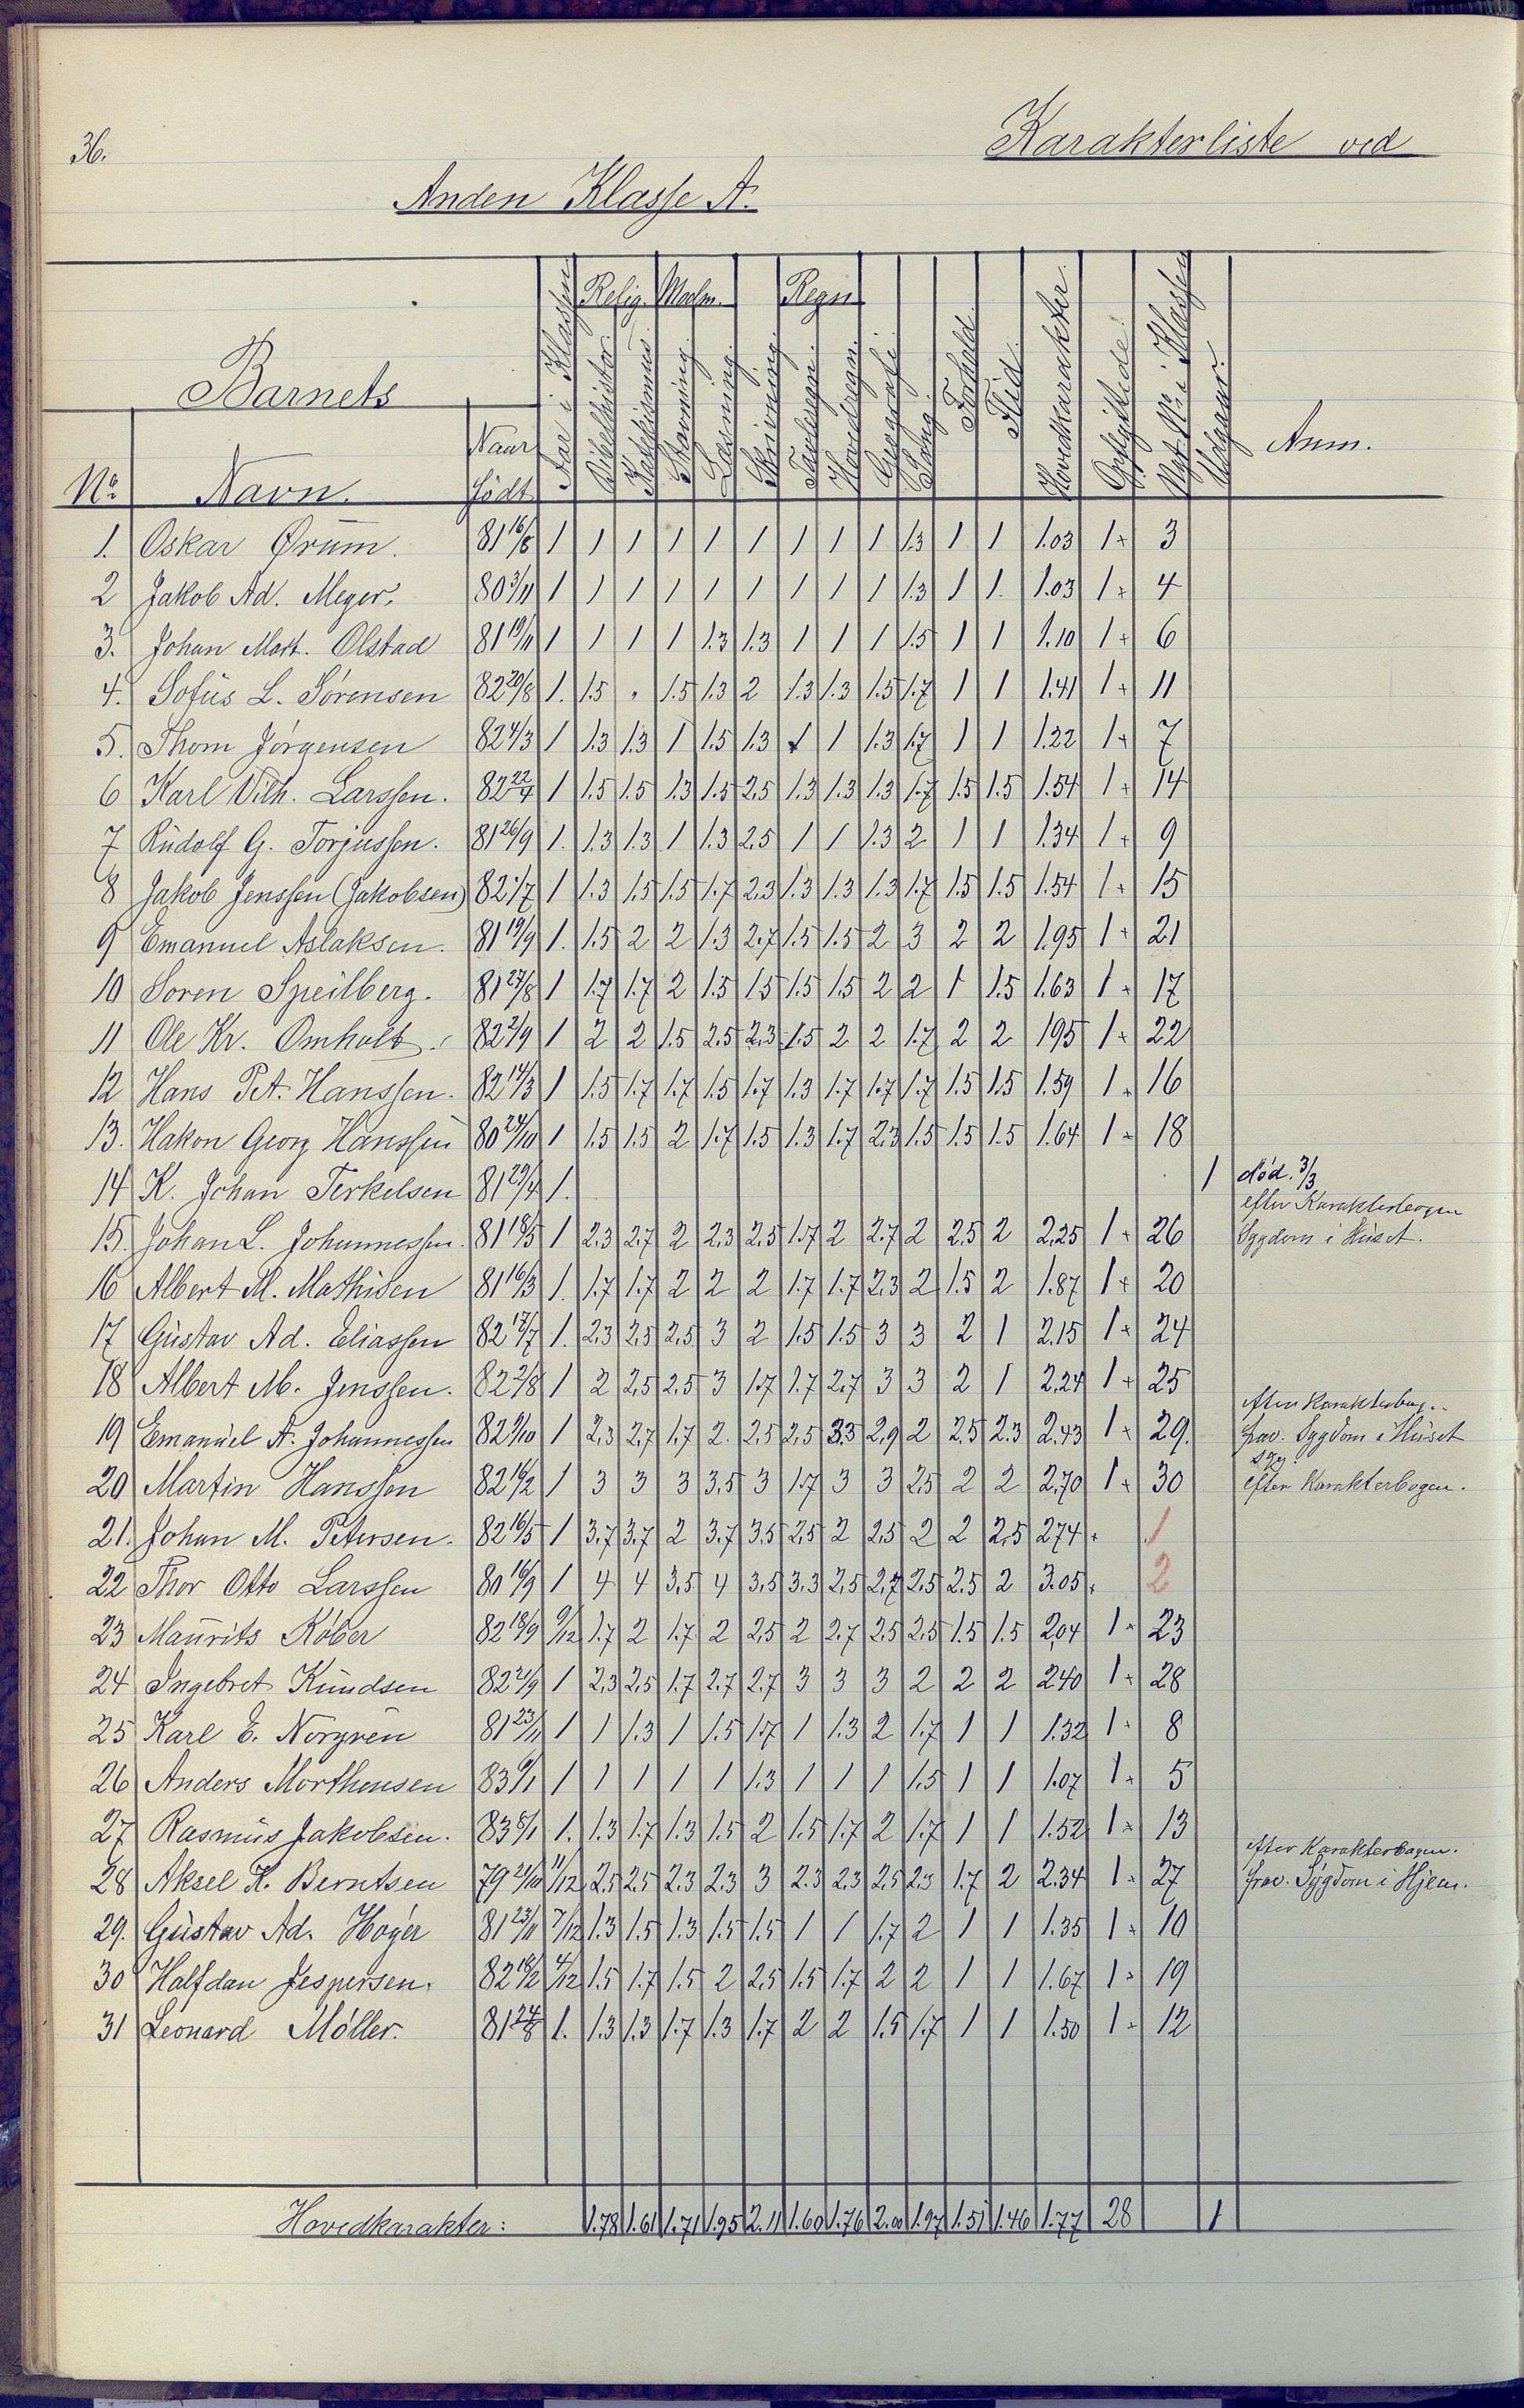 36.
Karakterliste ved
Anden Klasse A.
Barnets
Relig. Modsm. Regn
No. Navn. Naar født Aar i Klassen Bibelhistor. Katekismus Stavning. Læsning. Skrivning. Tavleregn. Hovedregn. Geografi. Sang. Forhold Flid. Hovedkarakter. Opflyttede. Nyt No. i Klassen Udgaar. Anm.
1. Oskar Ørum. 81 16/8 1 1 1 1 1 1 1 1 1 1.3 1 1 1.03 1+ 3
2 Jakob Ad. Meyer. 80 3/11 1 1 1 1 1 1 1 1 1 1.3 1 1. 1.03 1+ 4
3. Johan Mart. Olstad 81 19/11 1 1 1 1 1.3 1.3 1 1 1 1.5 1 1 1.10 1+ 6
4. Sofus L. Sørensen 82 20/8 1. 1.5 " 1.5 1.3 2 1.3 1.3 1.5 1.7 1 1 1.41 1+ 11
5. Thom Jørgensen 82 4/3 1 1.3 1.3 1 1.5 1.3 1 1 1.3 1.7 1 1 1.22 1+ 7
6 Karl Vilh. Larssen. 82 22/4 1 1.5 1.5 1.3 1.5 2.5 1.3 1.3 1.3 1.7 1.5 1.5 1.54 1+ 14
7 Rudolf G. Torjussen. 81 26/9 1. 1.3 1.3 1 1.3 2.5 1 1 1.3 2 1 1 1.34 1+ 9
8 Jakob Jenssen (Jakobsen) 82 1/7 1 1.3 1.5 1.5 1.7 2.3 1.3 1.3 1.3 1.7 1.5 1.5 1.54 1+ 15
9 Emanuel Aslaksen. 81 19/9 1. 1.5 2 2 1.3 2.7 1.5 1.5 2 3 2 2 1.95 1+ 21
10 Soren Speilberg. 81 27/8 1 1.7 1.7 2 1.5 1.5 1.5 1.5 2 2 1 1.5 1.63 1+ 17
11 Ole Kr. Omholt. 82 2/9 1 2 2 1.5 2.5 2.3 1.5 2 2 1.7 2 2 1.95 1+ 22
12 Hans Pet. Hanssen. 82 14/3 1 1.5 1.7 1.7 1.5 1.7 1.3 1.7 1.7 1.7 1.5 1.5 1.59 1+ 16
13. Hakon Georg Hanssen 80 24/10 1 1.5 1.5 2 1.7 1.5 1.3 1.7 2.3 1.5 1.5 1.5 1.64 1+ 18
14 K. Johan Terkelsen 81 29/4 1. 1 død. 3/3
efter Karakterbogen
15. Johan L. Johannessen. 81 18/5 1 2.3 2.7 2 2.3 2.5 1.7 2 2.7 2 2.5 2 2.25 1+ 26 Sygdom i Huset.
16 Albert M. Mathisen 81 16/3 1. 1.7 1.7 2 2 2 1.7 1.7 2.3 2 1.5 2 1.87 1+ 20
17 Gustav Ad. Eliassen 82 17/7 1. 2.3 2.5 2.5 3 2 1.5 1.5 3 3 2 1 2.15 1+ 24
18 Albert M. Jenssen. 82 2/8 1 2 2.5 2.5 3 1.7 1.7 2.7 3 3 2 1 2.24 1+ 25
efter Karakterbog..
19 Emanuel A. Johannessen 82 9/10 1 2.3 2.7 1.7 2. 2.5 2.5 3.3 2.9 2 2.5 2.3 2.43 1+ 29. frav. Sygdom i Huset
syg.
20 Martin Hanssen 82 16/2 1 3 3 3 3.5 3 1.7 3 3 2.5 2 2 2.70 1+ 30 efter Karakterbogen.
21. Johan M. Petersen. 82 16/5 1 3.7 3.7 2 3.7 3.5 2.5 2 2.5 2 2 2.5 2.74 + 1
22 Thor Otto Larssen 80 16/9 1 4 4 3.5 4 3.5 3.3 2.5 2.7 2.5 2.5 2 3.05 + 2
23 Maurits Kober 82 18/9 9/12 1.7 2 1.7 2 2.5 2 2.7 2.5 2.5 1.5 1.5 2.04 1+ 23
24 Ingebret Knudsen 82 21/9 1 2.3 2.5 1.7 2.7 2.7 3 3 3 2 2 2 2.40 1+ 28
25 Karl E. Norgren 81 23/11 1 1 1.3 1 1.5 1.7 1 1.3 2 1.7 1 1 1.32 1+ 8
26 Anders Morthensen 83 9/1 1 1 1 1 1 1.3 1 1 1 1.5 1 1 1.07 1+ 5
27 Rasmus Jakobsen. 83 8/1 1. 1.3 1.7 1.3 1.5 2 1.5 1.7 2 1.7 1 1 1.52 1+ 13
efter Karakterbogen.
28 Aksel K. Berntsen 79 21/10 11/12 2.5 2.5 2.3 2.3 3 2.3 2.3 2.5 2.3 1.7 2 2.34 1+ 27 frav. Sygdom i Hjem.
29. Gustav Ad. Høyer 81 23/11 7/12 1.3 1.5 1.3 1.5 1.5 1 1 1.7 2 1 1 1.35 1+ 10
30 Halfdan Jespersen. 82 18/2 4/12 1.5 1.7 1.5 2 2.5 1.5 1.7 2 2 1 1 1.67 1+ 19
31 Leonard Møller. 81 24/8 1. 1.3 1.3 1.7 1.3 1.7 2 2 1.5 1.7 1 1 1.50 1+ 12
Hovedkarakter: 1.78 1.61 1.71 1.95 2.11 1.60 1.76 2.00 1.97 1.51 1.46 1.77 28 1